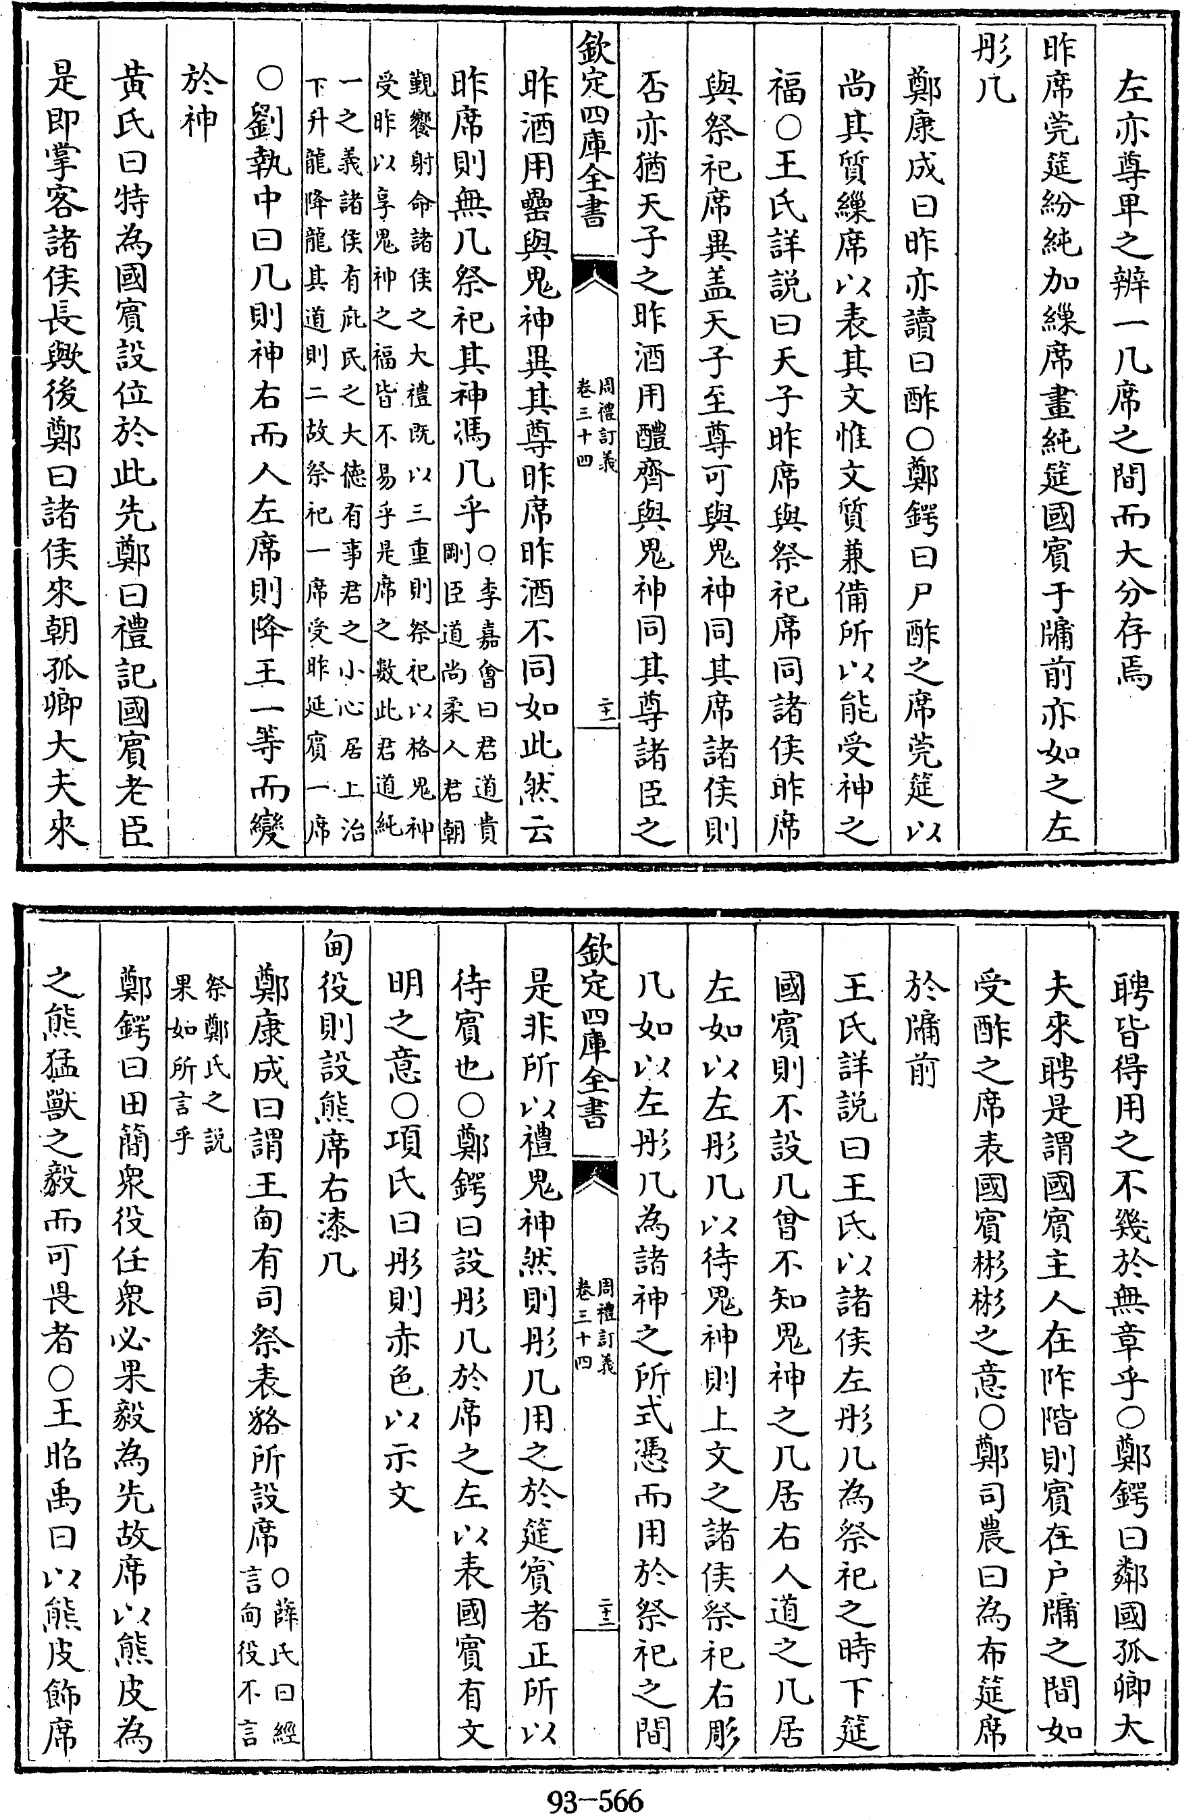 左亦尊卑之辨一几席之間而大分存焉
昨席莞筵紛純加繅席畫純筵國賔于牖前亦如之左
彤几
鄭康成曰昨亦讀曰酢〇鄭鍔曰尸酢之席莞筵以
尚其質繅席以表其文惟文質兼備所以能受神之
福〇王氏詳説曰天子昨席與祭祀席同諸侯昨席
與祭祀席異盖天子至尊可與鬼神同其席諸侯則
否亦猶天子之昨酒用醴齊與鬼神同其尊諸臣之
欽定四庫全書
周禮訂義
卷三十四
二十一
昨酒用罍與鬼神異其尊昨席昨酒不同如此然云
昨席則無几祭祀其神馮几乎〇李嘉會曰君道貴
剛臣道尚柔人君朝
覲饗射命諸侯之大禮既以三重則祭祀以格鬼神
受昨以享鬼神之福皆不易乎是席之數此君道純
一之義諸侯有庇民之大德有事君之小心居上治
下升龍降龍其道則二故祭祀一席受昨延賔一席
〇劉執中曰几則神右而人左席則降王一等而變
於神
黃氏曰特為國賔設位於此先鄭曰禮記國賔老臣
是即掌客諸侯長歟後鄭曰諸侯來朝孤卿大夫來
聘皆得用之不幾於無章乎〇鄭鍔曰鄰國孤卿大
夫來聘是謂國賔主人在阼階則賔在户牖之間如
受酢之席表國賔彬彬之意〇鄭司農曰為布筵席
於牖前
王氏詳説曰王氏以諸侯左彤几為祭祀之時下筵
國賔則不設几曾不知鬼神之几居右人道之几居
左如以左彤几以待鬼神則上文之諸侯祭祀右彫
几如以左彤几為諸神之所式憑而用於祭祀之間
欽定四庫全書
周禮訂義
卷三十四
二十二
是非所以禮鬼神然則彤几用之於筵賔者正所以
待賔也〇鄭鍔曰設彤几於席之左以表國賔有文
明之意〇項氏曰彤則赤色以示文
甸役則設熊席右漆几
鄭康成曰謂王甸有司祭表貉所設席〇薛氏曰經
言甸役不言
祭鄭氏之説
果如所言乎
鄭鍔曰田簡衆役任衆必果毅為先故席以熊皮為
之熊猛獸之毅而可畏者〇王昭禹曰以熊皮飾席
93-566